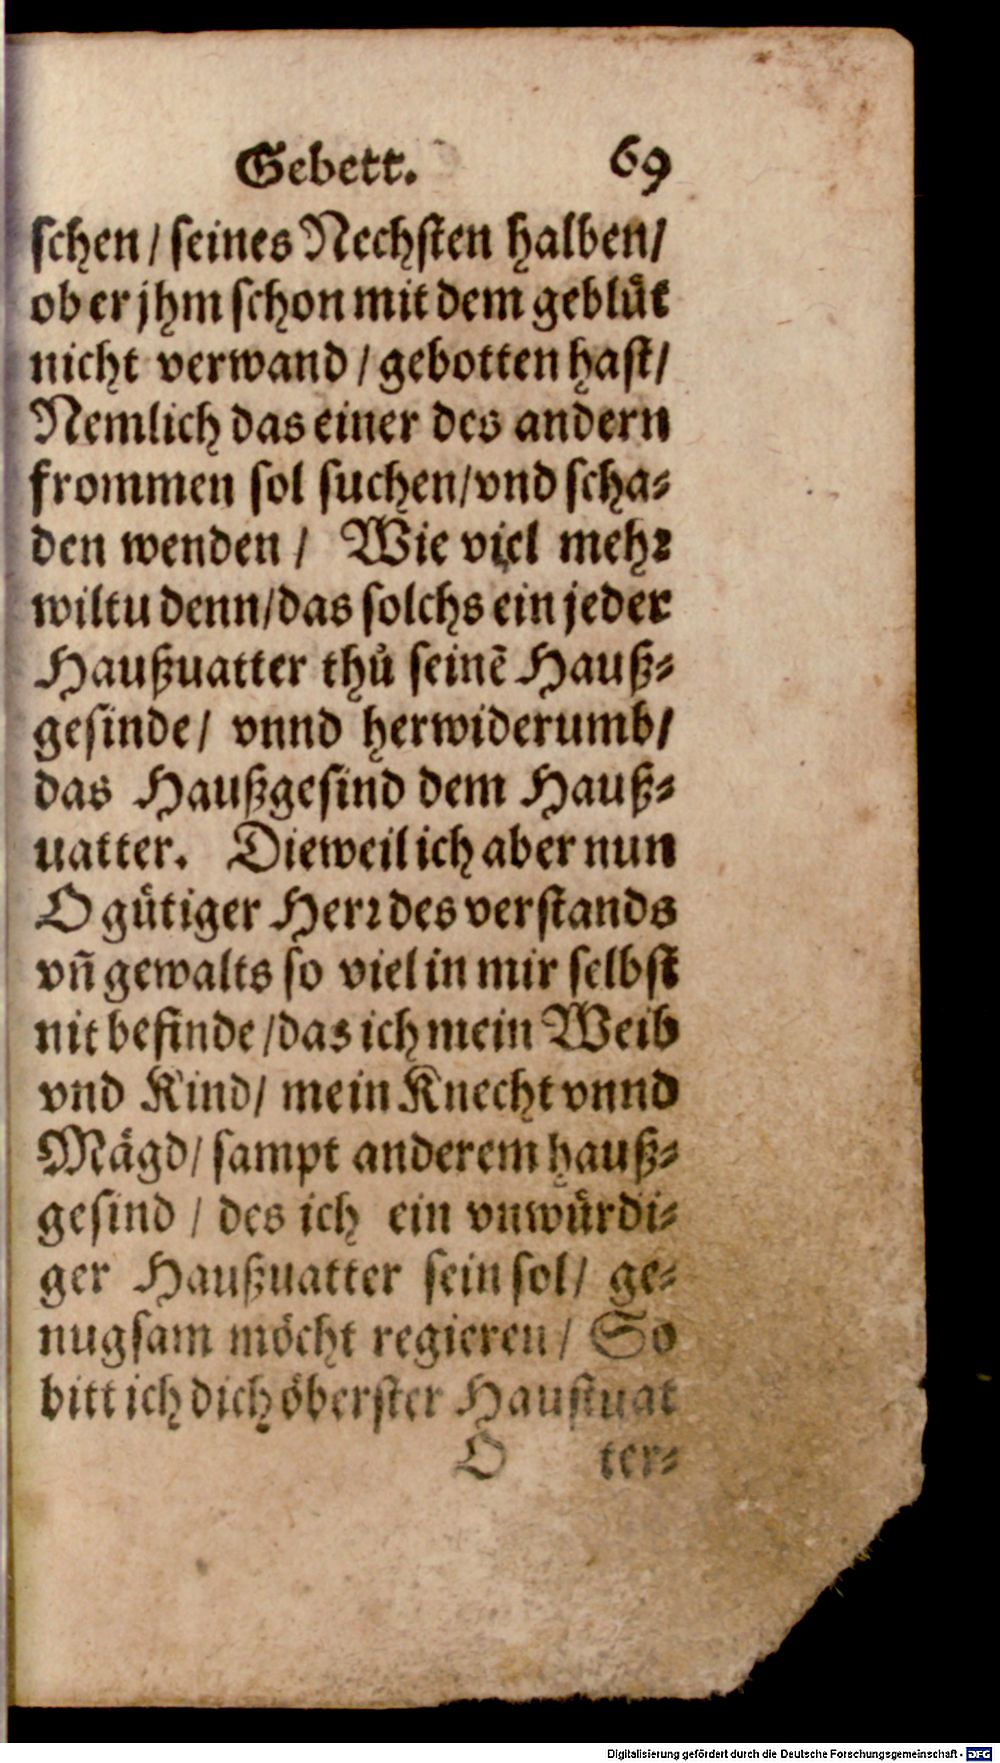 Gebett. 69
schen / seines Nechsten halben /
ob er jhm schon mit dem geblůt
nicht verwand / gebotten hast /
Nemlich das einer des andern
frommen sol suchen / vnd scha⸗
den wenden / Wie viel mehꝛ
wiltu denn / das solchs ein jeder
Haußuatter thů seinẽ Hauß⸗
gesinde / vnnd herwiderumb /
das Haußgesind dem Hauß⸗
uatter. Dieweil ich aber nun
O gůtiger Herꝛ des verstands
vñ gewalts so viel in mir selbst
nit befinde / das ich mein Weib
vnd Kind / mein Knecht vnnd
Mågd / sampt anderem hauß⸗
gesind / des ich ein vnwůrdi⸗
ger Haußuatter sein sol / ge⸗
nugsam mo̊cht regieren / So
bitt ich dich o̊berster Haußuat
O ter⸗
Digitalisierung gefördert durch die Deutsche Forschungsgemeinschaft - DFG